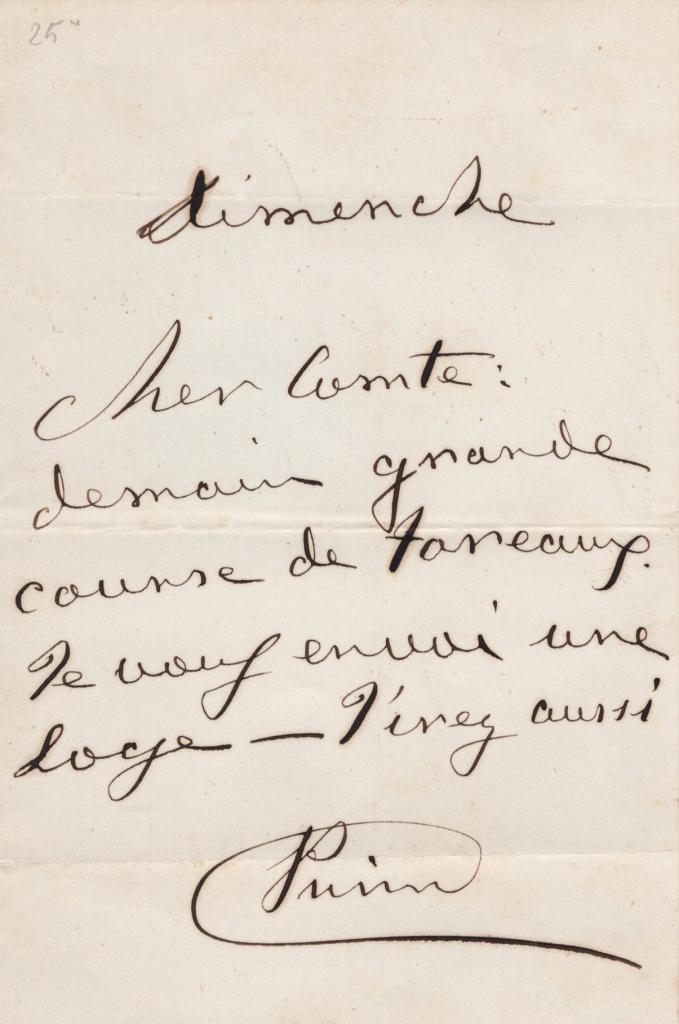 25
dimenche
Cher Comte:
demain grande
course de toreaux.
Je vous envoi une
Loge — J'irez aussi
Prim